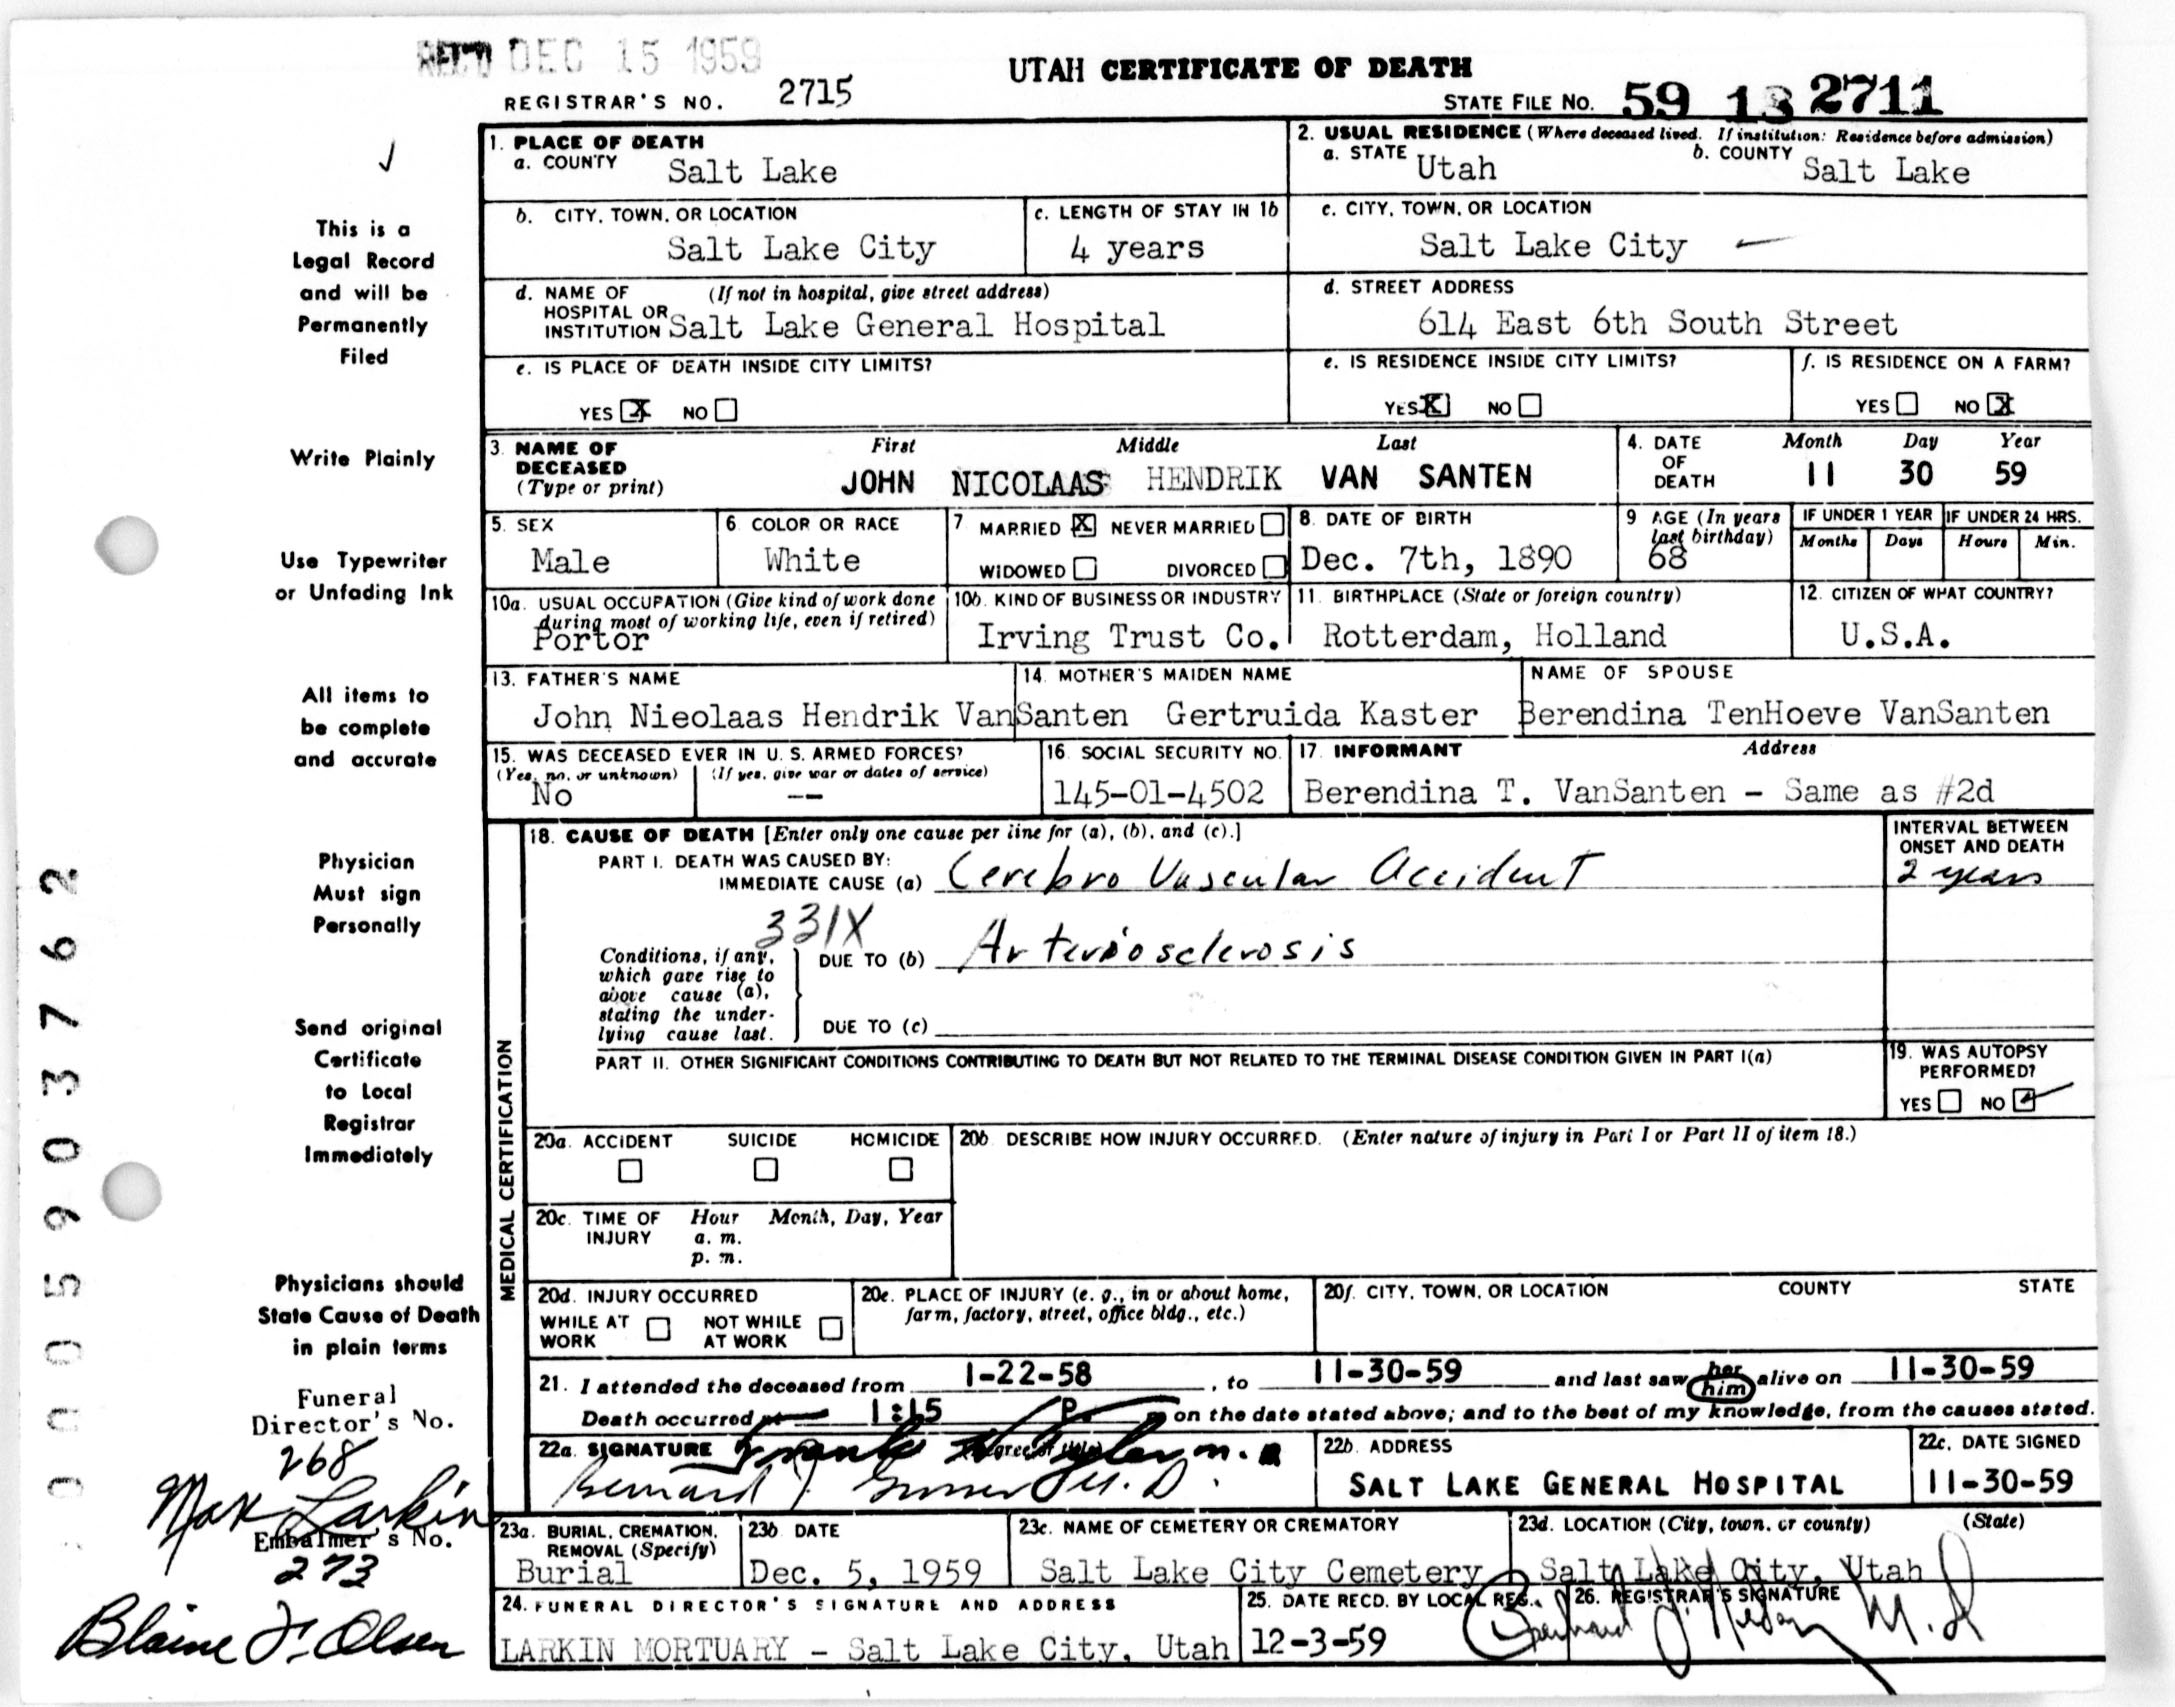 REC'D DEC 15 1959
UTAH CERTIFICATE OF DEATH
REGISTRAR'S NO. 2715
STATE FILE NO. 59 18 2711
1. PLACE OF DEATH
a. COUNTY Salt Lake
2. USUAL RESIDENCE (Where deceased lived. If institution: Residence before admission)
a. STATE Utah b. COUNTY Salt Lake
b. CITY, TOWN, OR LOCATION
Salt Lake City
c. LENGTH OF STAY IN 1b
4 years
c. CITY, TOWN, OR LOCATION
Salt Lake City
d. NAME OF (If not in hospital, give street address)
HOSPITAL OR
INSTITUTION Salt Lake General Hospital
d. STREET ADDRESS
614 East 6th South Street
e. IS PLACE OF DEATH INSIDE CITY LIMITS?
YES X NO
e. IS RESIDENCE INSIDE CITY LIMITS?
YES X NO
f. IS RESIDENCE ON A FARM?
YES NO X
3. NAME OF DECEASED (Type or print)
First Middle Last
JOHN NICOLAAS HENDRIK VAN SANTEN
4. DATE OF DEATH
Month Day Year
11 30 59
5. SEX
Male
6. COLOR OR RACE
White
7. MARRIED X NEVER MARRIED
WIDOWED DIVORCED
8. DATE OF BIRTH
Dec. 7th, 1890
9. AGE (In years last birthday)
68
IF UNDER 1 YEAR
Months Days
IF UNDER 24 HRS.
Hours Min.
10a. USUAL OCCUPATION (Give kind of work done during most of working life, even if retired)
Portor
10b. KIND OF BUSINESS OR INDUSTRY
Irving Trust Co.
11. BIRTHPLACE (State or foreign country)
Rotterdam, Holland
12. CITIZEN OF WHAT COUNTRY?
U.S.A.
13. FATHER'S NAME
John Nieolaas Hendrik VanSanten
14. MOTHER'S MAIDEN NAME
Gertruida Kaster
NAME OF SPOUSE
Berendina TenHoeve VanSanten
15. WAS DECEASED EVER IN U. S. ARMED FORCES?
(Yes, no, or unknown) (If yes, give war or dates of service)
No --
16. SOCIAL SECURITY NO.
145-01-4502
17. INFORMANT Address
Berendina T. VanSanten - Same as #2d
MEDICAL CERTIFICATION
18. CAUSE OF DEATH [Enter only one cause per line for (a), (b), and (c).]
PART I. DEATH WAS CAUSED BY:
IMMEDIATE CAUSE (a) Cerebro Vascular Accident
INTERVAL BETWEEN
ONSET AND DEATH
2 years
331X
Conditions, if any,
which gave rise to
above cause (a),
stating the under-
lying cause last.
DUE TO (b) Arteriosclerosis
DUE TO (c)
PART II. OTHER SIGNIFICANT CONDITIONS CONTRIBUTING TO DEATH BUT NOT RELATED TO THE TERMINAL DISEASE CONDITION GIVEN IN PART I(a)
19. WAS AUTOPSY
PERFORMED?
YES NO
20a. ACCIDENT SUICIDE HOMICIDE
20b. DESCRIBE HOW INJURY OCCURRED. (Enter nature of injury in Part I or Part II of item 18.)
20c. TIME OF INJURY Hour Month, Day, Year
a. m.
p. m.
20d. INJURY OCCURRED
WHILE AT WORK NOT WHILE AT WORK
20e. PLACE OF INJURY (e. g., in or about home, farm, factory, street, office bldg., etc.)
20f. CITY, TOWN, OR LOCATION COUNTY STATE
21. I attended the deceased from 1-22-58, to 11-30-59 and last saw her him alive on 11-30-59
Death occurred at 1:15 P. m on the date stated above; and to the best of my knowledge, from the causes stated.
22a. SIGNATURE
22b. ADDRESS
SALT LAKE GENERAL HOSPITAL
22c. DATE SIGNED
11-30-59
23a. BURIAL, CREMATION, REMOVAL (Specify)
Burial
23b. DATE
Dec. 5, 1959
23c. NAME OF CEMETERY OR CREMATORY
Salt Lake City Cemetery
23d. LOCATION (City, town, or county) (State)
Salt Lake City, Utah
24. FUNERAL DIRECTOR'S SIGNATURE AND ADDRESS
LARKIN MORTUARY - Salt Lake City, Utah
25. DATE RECD. BY LOCAL REG.
12-3-59
26. REGISTRAR'S SIGNATURE
This is a
Legal Record
and will be
Permanently
Filed
Write Plainly
Use Typewriter
or Unfading Ink
All items to
be complete
and accurate
Physician
Must sign
Personally
Send original
Certificate
to Local
Registrar
Immediately
Physicians should
State Cause of Death
in plain terms
Funeral
Director's No.
268
Max Larkin
Embalmer's No.
273
Blaine F. Olsen
005903762